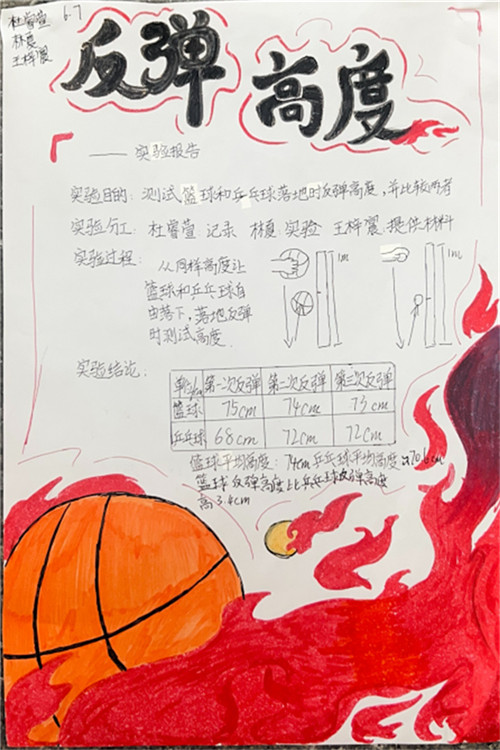 杜睿萱 6.7
林夏
王梓震
反弹高度
——实验报告
实验目的: 测试篮球和乒乓球落地时反弹高度,并比较两者
实验分工: 杜睿萱 记录 林夏 实验 王梓震 提供材料
实验过程: 从同样高度让
篮球和乒乓球自
由落下,落地反弹
时测试高度.
1m
1m
实验结论:
单位/cm 第一次反弹 第二次反弹 第三次反弹
篮球 75cm 74cm 73cm
乒乓球 68cm 72cm 72cm
篮球平均高度:74cm 乒乓球平均高度≈70.6cm
篮球反弹高度比乒乓球反弹高度
高3.4cm